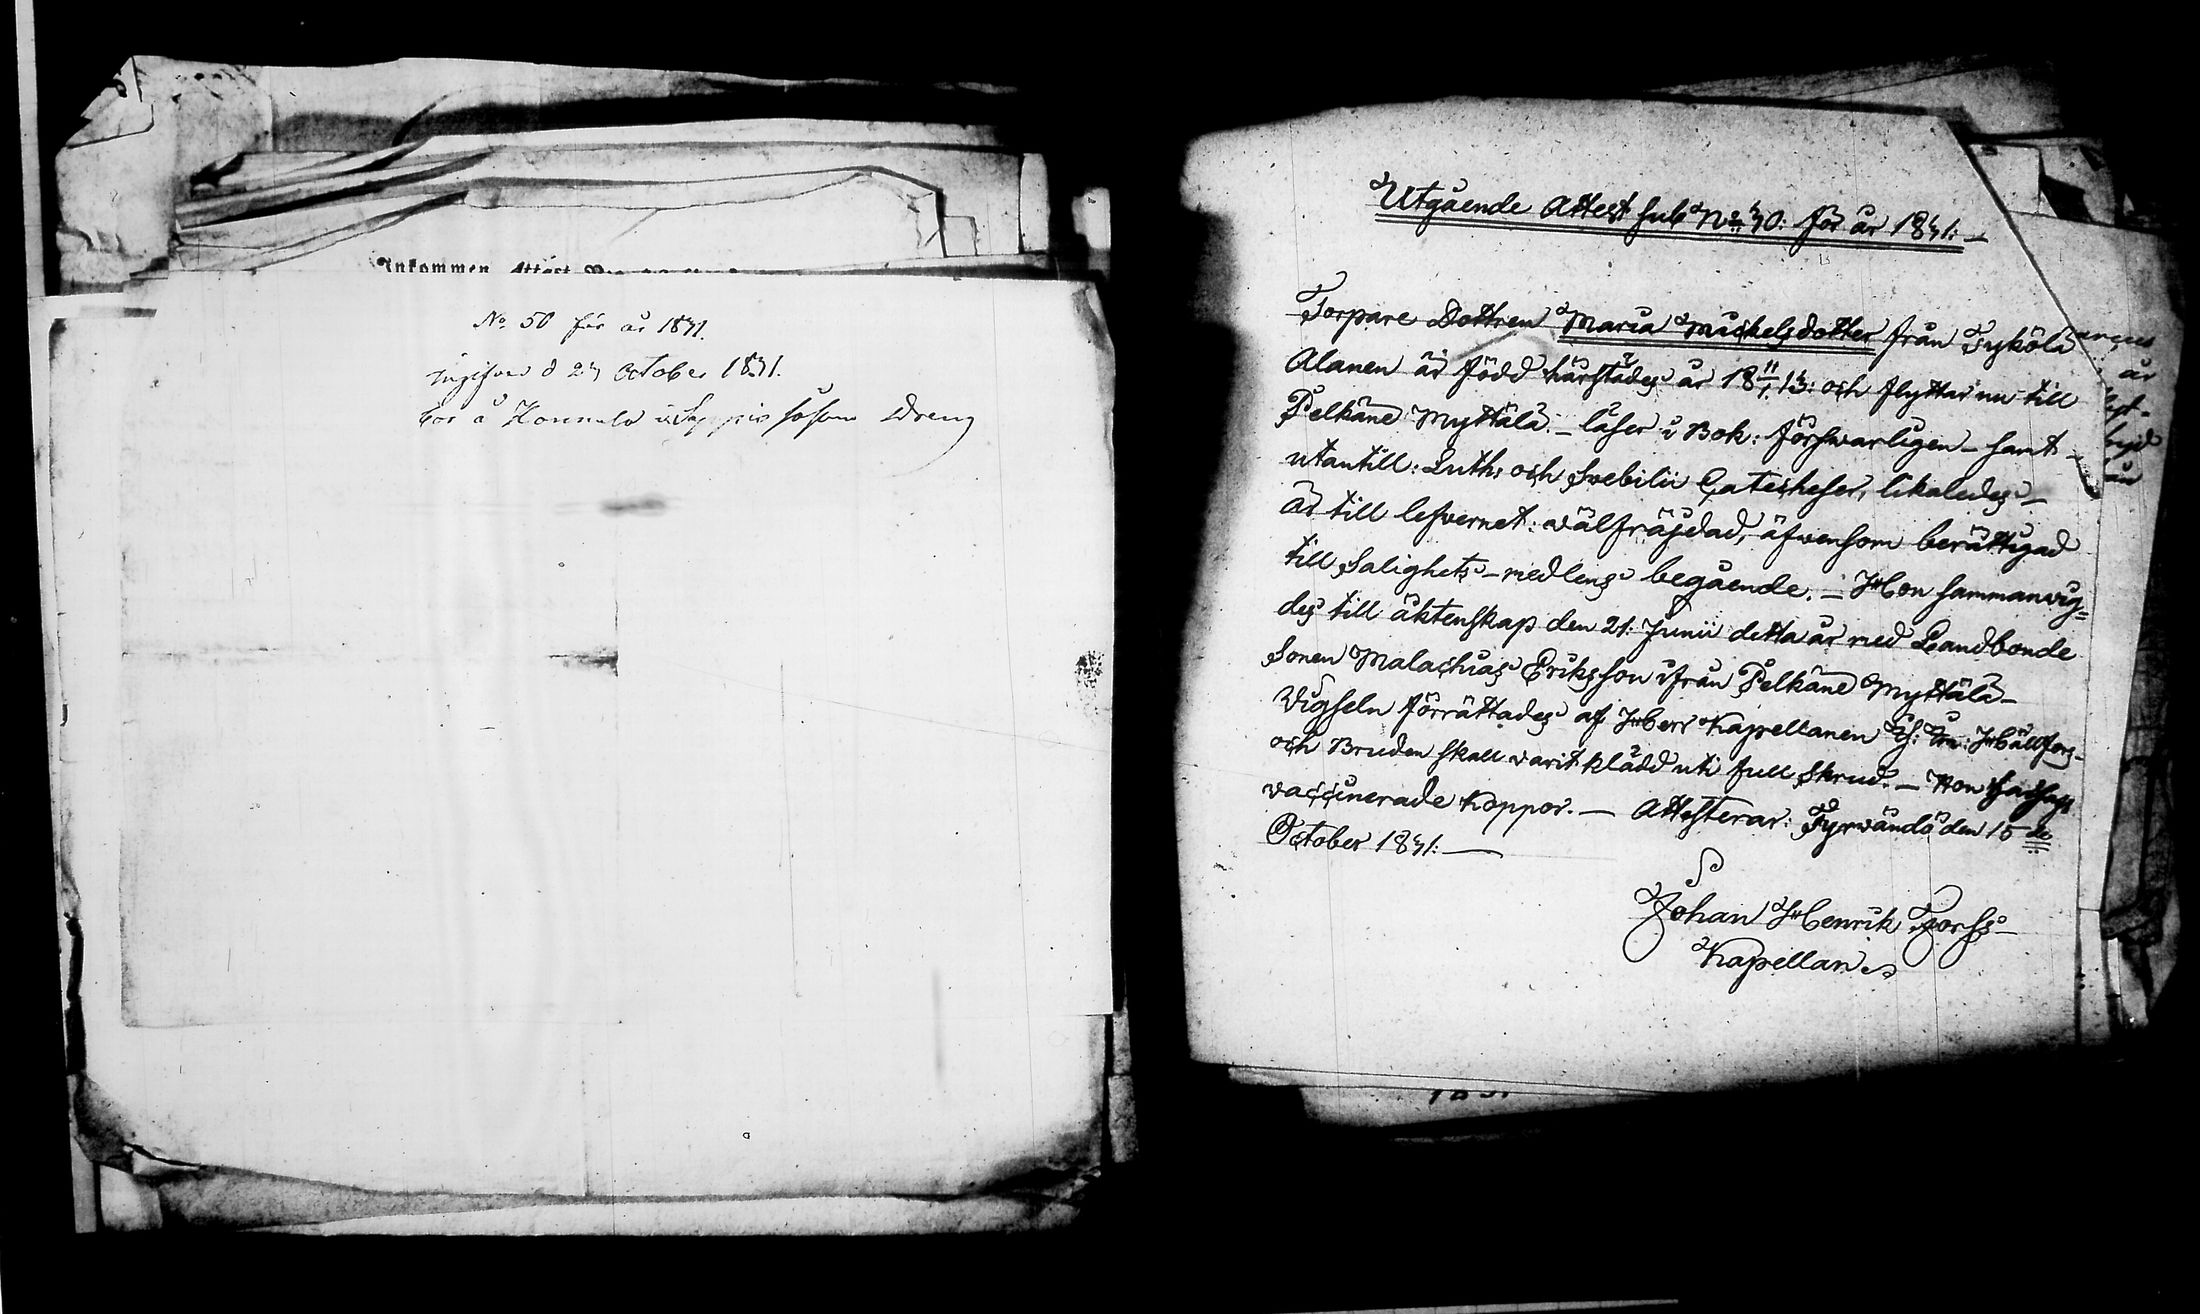 Inkommen Attest
No 50 för år 1841.
Ingifven d 24 October 1841.
bor å Konnala i Seppis såsom Dreng
Utgående Attest sub No 40. för år 1841. —
Torpare Dottren Maria Michelsdotter från Tyköla
Alanen är född härstädes år 18 11/1. 13: och flyttar nu till
Pelkäne Myttälä. — läser i Bok: försvarligen — samt —
utantill: Luth: och Svebilii Catecheser, likaledes —
är till lefvernet: välfräjdad, äfwensom berättigad
till Salighets-medlens begående. — Hon sammanvig=
des till äktenskap den 21. Junii detta år med Landbonde
Sonen Malachias Eriksson ifrån Pelkäne Myttälä —
Vigseln förrättades af Herr Kapellanen Hällfors —
och Bruden skall varit klädd uti full Skrud. — Hon har haft
vaccinerade Koppor. — Attesterar: Tyrvändö den 15 de
October 1841: —
Johan Henrik Forss —
Kapellan.